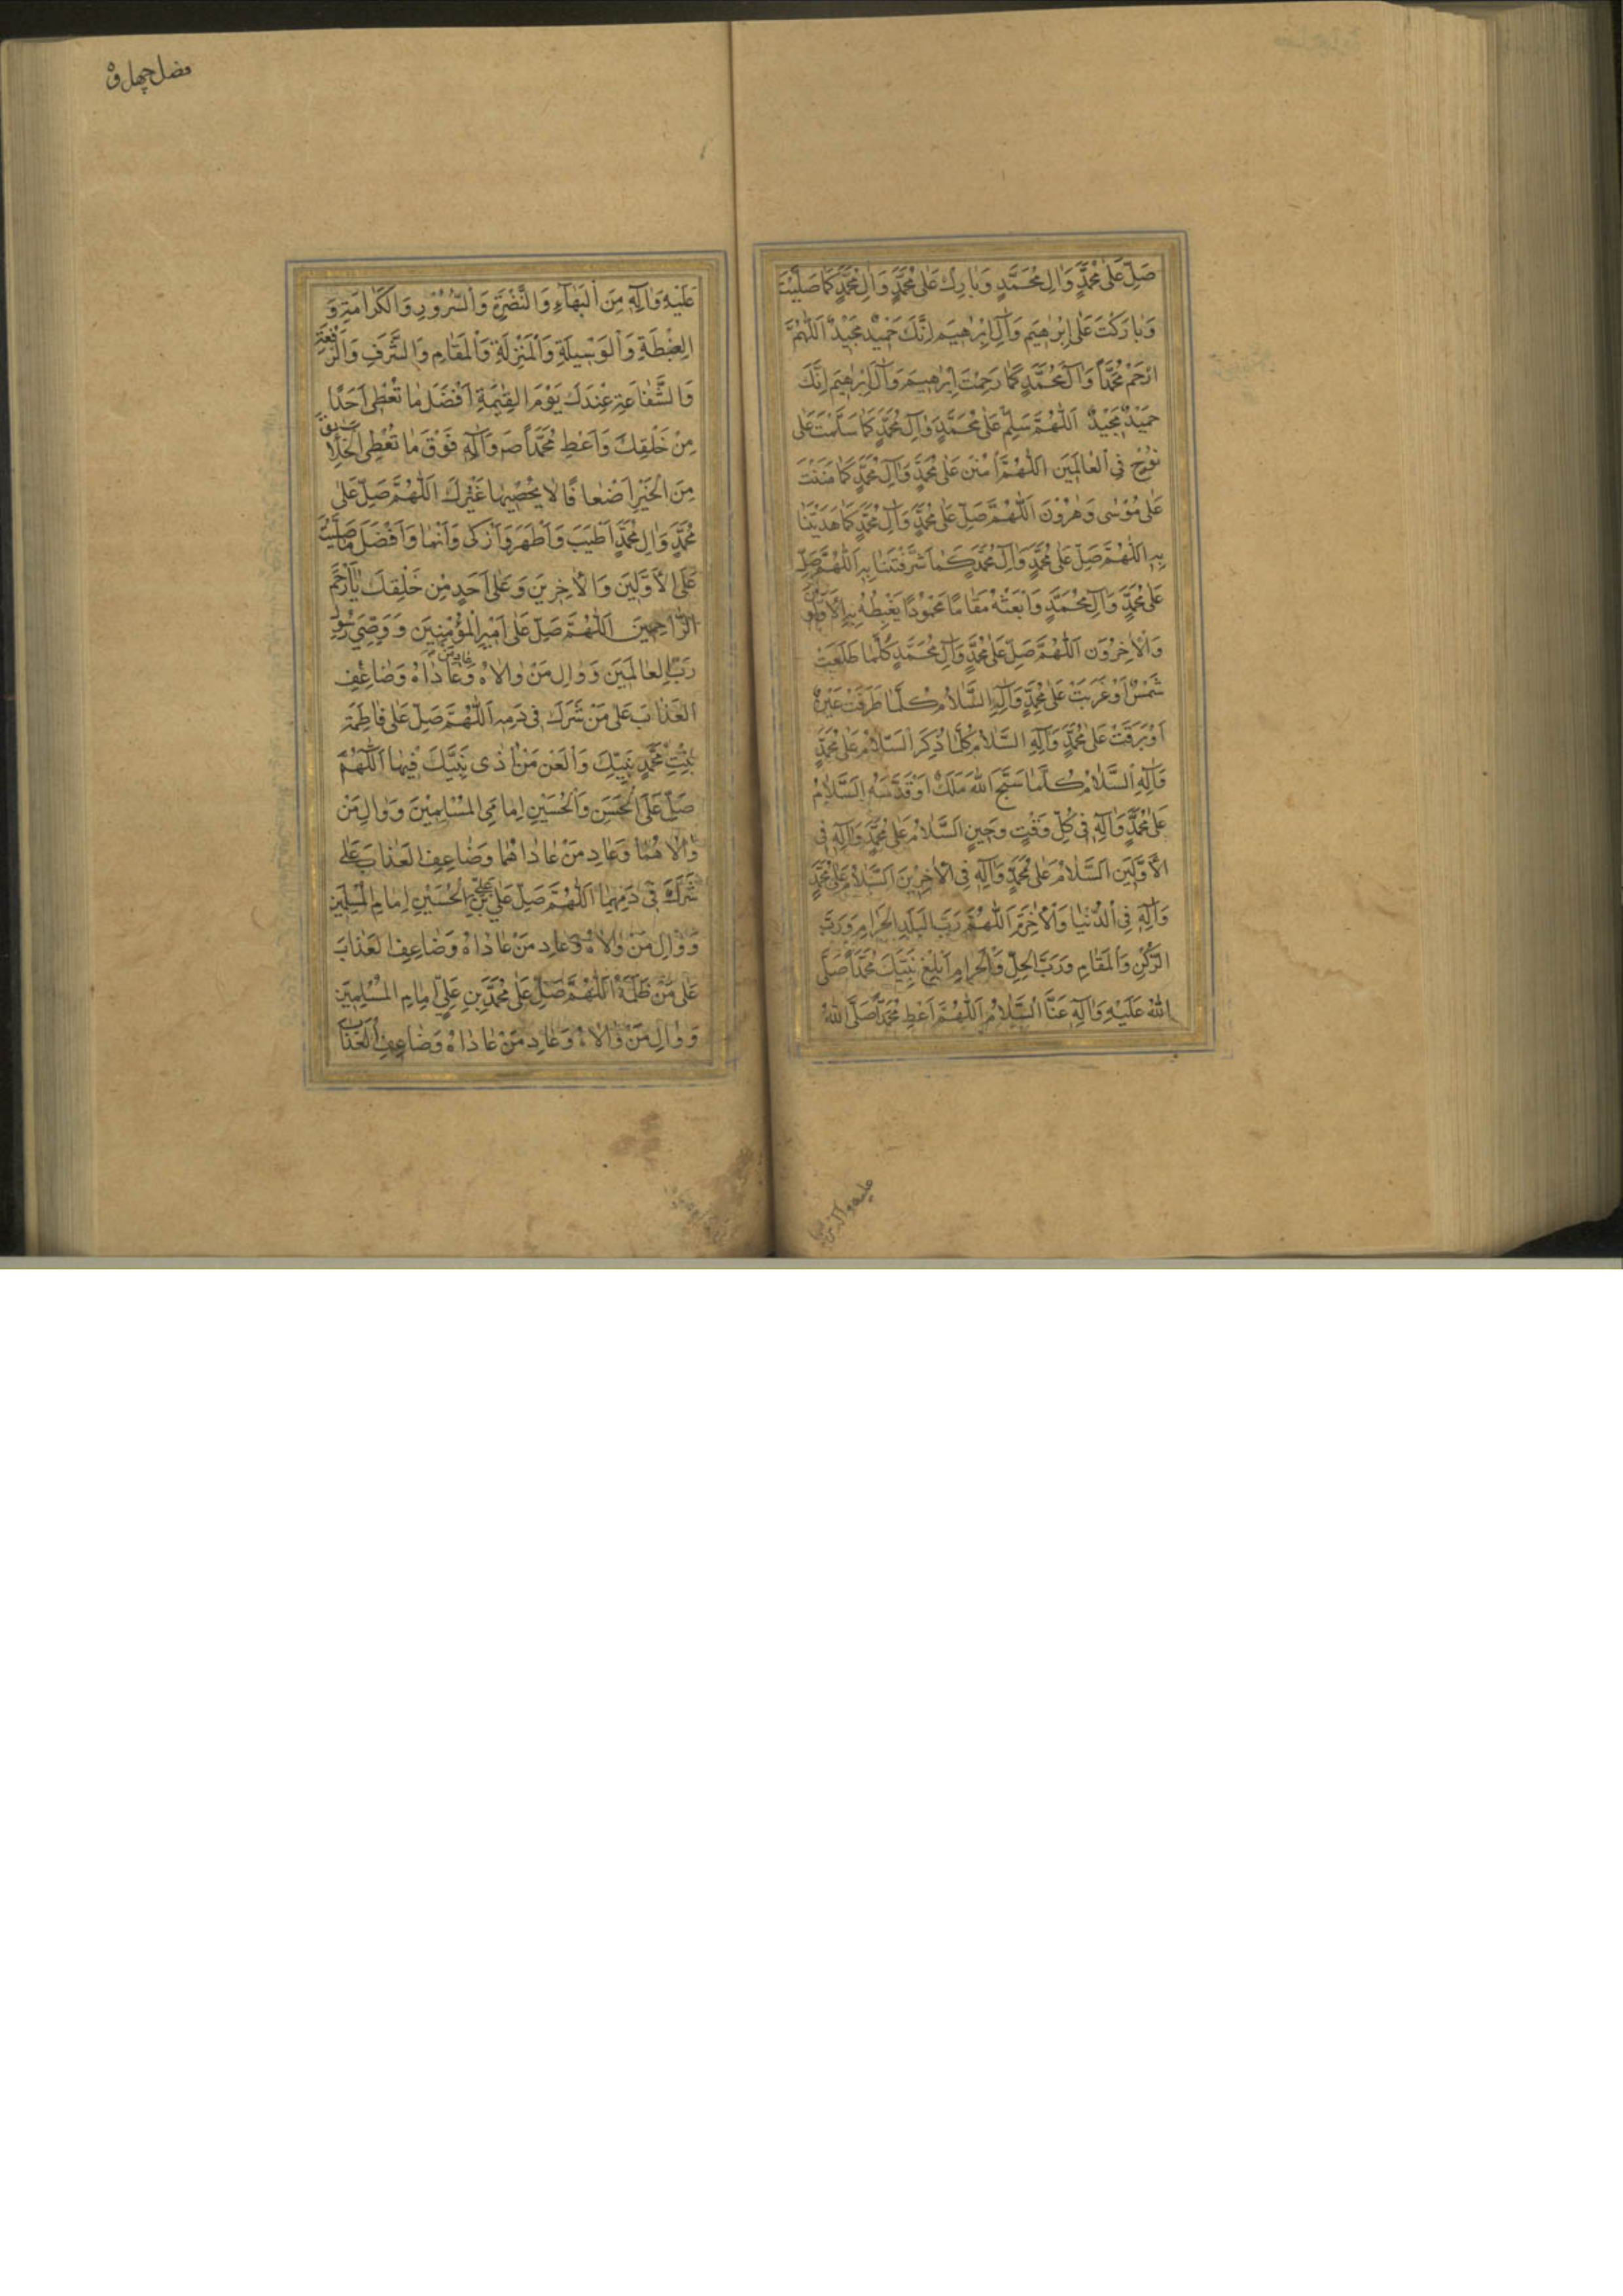 صَلِّ عَلٰى مُحَمَّدٍ وَاٰلِ مُحَمَّدٍ وَبٰارِكْ عَلٰى مُحَمَّدٍ وَاٰلِ مُحَمَّدٍ كَمٰا صَلَّيْتَ
وَبٰارَكْتَ عَلٰى اِبْرٰهيمَ وَاٰلِ اِبْرٰهيمَ اِنَّكَ حَميدٌ مَجيدٌ اَللّٰهُمَّ
ارْحَمْ مُحَمَّداً وَاٰلَ مُحَمَّدٍ كَمٰا رَحِمْتَ اِبْرٰهيمَ وَاٰلَ اِبْرٰهيمَ اِنَّكَ
حَميدٌ مَجيدٌ اَللّٰهُمَّ سَلِّمْ عَلٰى مُحَمَّدٍ وَاٰلِ مُحَمَّدٍ كَمٰا سَلَّمْتَ عَلٰى
نُوْحٍ فِى الْعٰالَمينَ اَللّٰهُمَّ امْنُنْ عَلٰى مُحَمَّدٍ وَاٰلِ مُحَمَّدٍ كَمٰا مَنَنْتَ
عَلٰى مُوْسٰى وَهٰرُوْنَ اَللّٰهُمَّ صَلِّ عَلٰى مُحَمَّدٍ وَاٰلِ مُحَمَّدٍ كَمٰا هَدَيْتَنٰا
بِهِ اَللّٰهُمَّ صَلِّ عَلٰى مُحَمَّدٍ وَاٰلِ مُحَمَّدٍ كَمٰا شَرَّفْتَنٰا بِهِ اَللّٰهُمَّ صَلِّ
عَلٰى مُحَمَّدٍ وَاٰلِ مُحَمَّدٍ وَابْعَثْهُ مَقٰامًا مَحْمُوْدًا يَغْبِطُهُ بِهِ الْاَوَّلُوْنَ
وَالْاٰخِرُوْنَ اَللّٰهُمَّ صَلِّ عَلٰى مُحَمَّدٍ وَاٰلِ مُحَمَّدٍ كُلَّمٰا طَلَعَتْ
شَمْسٌ اَوْ غَرَبَتْ عَلٰى مُحَمَّدٍ وَاٰلِهِ السَّلٰامُ كُلَّمٰا طَرَفَتْ عَيْنٌ
اَوْ بَرَقَتْ عَلٰى مُحَمَّدٍ وَاٰلِهِ السَّلٰامُ كُلَّمٰا ذُكِرَ السَّلٰامُ عَلٰى مُحَمَّدٍ
وَاٰلِهِ السَّلٰامُ كُلَّمٰا سَبَّحَ اللّٰهَ مَلَكٌ اَوْ قَدَّسَهُ السَّلٰامُ
عَلٰى مُحَمَّدٍ وَاٰلِهِ فى كُلِّ وَقْتٍ وَحينٍ اَلسَّلٰامُ عَلٰى مُحَمَّدٍ وَاٰلِهِ فِى
الْاَوَّلينَ اَلسَّلٰامُ عَلٰى مُحَمَّدٍ وَاٰلِهِ فِى الْاٰخِرينَ اَلسَّلٰامُ عَلٰى مُحَمَّدٍ
وَاٰلِهِ فِى الدُّنْيٰا وَالْاٰخِرَةِ اَللّٰهُمَّ رَبَّ الْبَلَدِ الْحَرٰامِ وَرَبَّ
الرُّكْنِ وَالْمَقٰامِ وَرَبَّ الْحِلِّ وَالْحَرٰامِ اَبْلِغْ نَبِيَّكَ مُحَمَّداً صَلَّى
اللّٰهُ عَلَيْهِ وَاٰلِهِ عَنَّا السَّلٰامَ اَللّٰهُمَّ اَعْطِ مُحَمَّداً صَلَّى اللّٰهُ
عليه وآله من
عَلَيْهِ وَاٰلِهِ مِنَ الْبَهٰاءِ وَالنَّضْرَةِ وَالسُّرُوْرِ وَالْكَرٰامَةِ وَ
الْغِبْطَةِ وَالْوَسيلَةِ وَالْمَنْزِلَةِ وَالْمَقٰامِ وَالشَّرَفِ وَالرِّفْعَةِ
وَالشَّفٰاعَةِ عِنْدَكَ يَوْمَ الْقِيٰمَةِ اَفْضَلَ مٰا تُعْطى اَحَدًا
مِنْ خَلْقِكَ وَاَعْطِ مُحَمَّداً ص وَاٰلِهِ فَوْقَ مٰا تُعْطِى الْخَلٰايِقَ
مِنَ الْخَيْرِ اَضْعٰافًا لٰا يُحْصيهٰا غَيْرُكَ اَللّٰهُمَّ صَلِّ عَلٰى
مُحَمَّدٍ وَاٰلِ مُحَمَّدٍ اَطْيَبَ وَاَطْهَرَ وَاَزْكٰى وَاَنْمٰا وَاَفْضَلَ مٰا صَلَّيْتَ
عَلَى الْاَوَّلينَ وَالْاٰخِرينَ وَعَلٰى اَحَدٍ مِنْ خَلْقِكَ يٰا اَرْحَمَ
الرّٰاحِمينَ اَللّٰهُمَّ صَلِّ عَلٰى اَميرِ الْمُؤْمِنينَ وَوَصِىِّ رَسُوْلِ
رَبِّ الْعٰالَمينَ وَوٰالِ مَنْ وٰالٰاهُ وَعٰادِ مَنْ عٰادٰاهُ وَضٰاعِفِ
الْعَذٰابَ عَلٰى مَنْ شَرَكَ فى دَمِهِ اَللّٰهُمَّ صَلِّ عَلٰى فٰاطِمَةَ
بِنْتِ مُحَمَّدٍ نَبِيِّكَ وَالْعَنْ مَنْ اٰذٰى نَبِيَّكَ فيهٰا اَللّٰهُمَّ
صَلِّ عَلَى الْحَسَنِ وَالْحُسَيْنِ اِمٰامَىِ الْمُسْلِمينَ وَوٰالِ مَنْ
وٰالٰاهُمٰا وَعٰادِ مَنْ عٰادٰاهُمٰا وَضٰاعِفِ الْعَذٰابَ عَلٰى
شَرَكَ فى دَمِهِمٰا اَللّٰهُمَّ صَلِّ عَلٰى عَلِىِّ بْنِ الْحُسَيْنِ اِمٰامِ الْمُسْلِمينَ
وَوٰالِ مَنْ وٰالٰاهُ وَعٰادِ مَنْ عٰادٰاهُ وَضٰاعِفِ الْعَذٰابَ
عَلٰى مَنْ ظَلَمَهُ اَللّٰهُمَّ صَلِّ عَلٰى مُحَمَّدِ بْنِ عَلِىٍّ اِمٰامِ الْمُسْلِمينَ
وَوٰالِ مَنْ وٰالٰاهُ وَعٰادِ مَنْ عٰادٰاهُ وَضٰاعِفِ الْعَذٰابَ